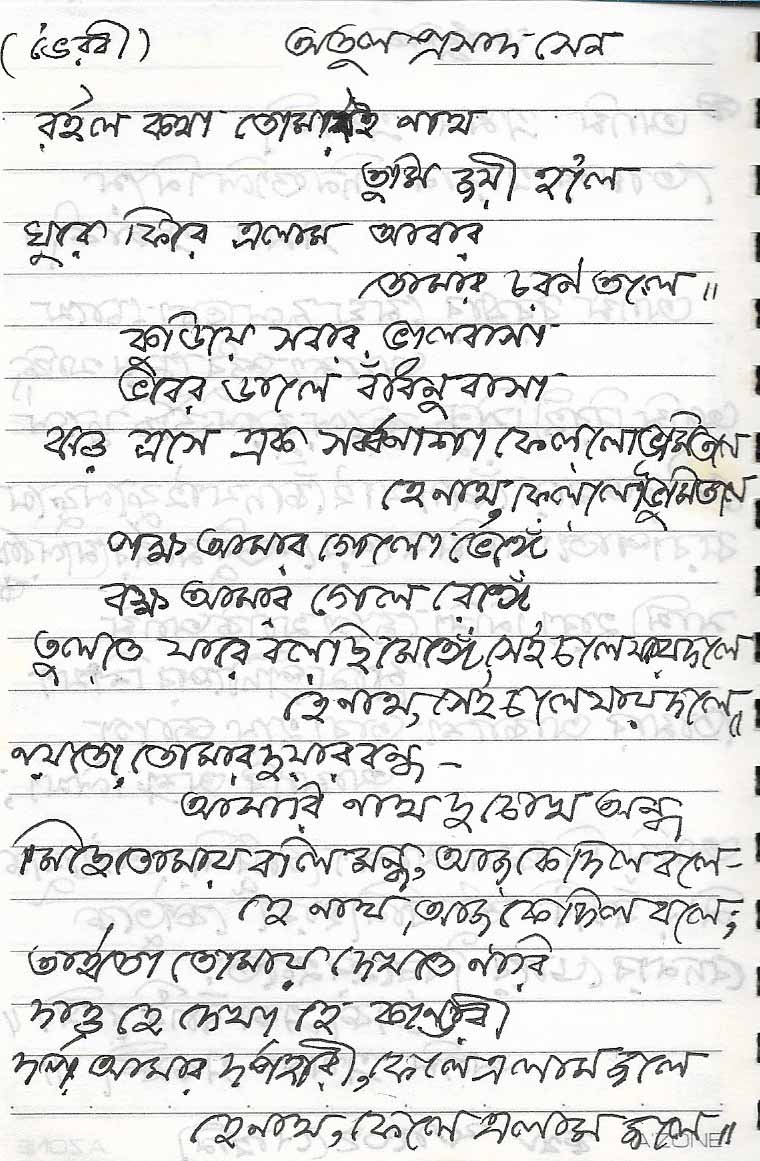 (ভৈরবী) অতুল প্রসাদ সেন
রইল কথা তোমারই নাথ
তুমি জয়ী হলে
ঘুরে ফিরে এলাম আবার
তোমার চরণ তলে॥
কুড়িয়ে সবার ভালবাসা
ভবের ডালে বাঁধিনু বাসা
ঝড় এসে এক সর্ব্বনাশা ফেললো ভূমিতলে
হে নাথ, ফেললো ভূমিতলে
পক্ষ আমার গেলো ভেঙ্গে
বক্ষ আমার গেল রেঙ্গে
তুলতে যারে বলেছি মেঙ্গে সেই চলে যায় দলে
হে নাথ, সেই চলে যায় দলে॥
নয়তো তোমার দুয়ার বন্ধ –
আমারি নাথ দু চোখ অন্ধ
মিছে তোমায় বলি মন্দ, আজ কে দিল বলে–
হে নাথ, আজ কে দিল বলে;
তাইতো তোমায় দেখতে নারি
দাও হে দেখা হে কান্ডারী
দর্প আমার দর্পহারী, ফেলে এলাম জলে
হে নাথ, ফেলে এলাম জলে॥
AZONE